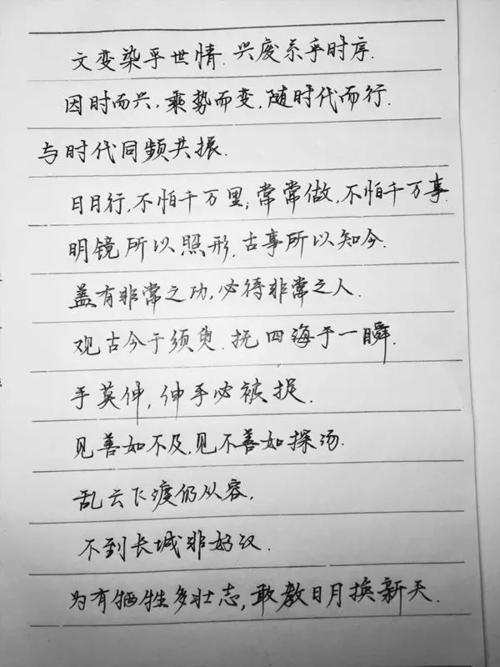 文变染乎世情.兴废系乎时序.
因时而兴,乘势而变,随时代而行.
与时代同频共振.
日日行,不怕千万里,常常做,不怕千万事.
明镜所以照形,古事所以知今.
盖有非常之功,必待非常之人.
观古今于须臾.抚四海于一瞬.
手莫伸,伸手必被捉.
见善如不及,见不善如探汤.
乱云飞渡仍从容,
不到长城非好汉.
为有牺牲多壮志,敢教日月换新天.